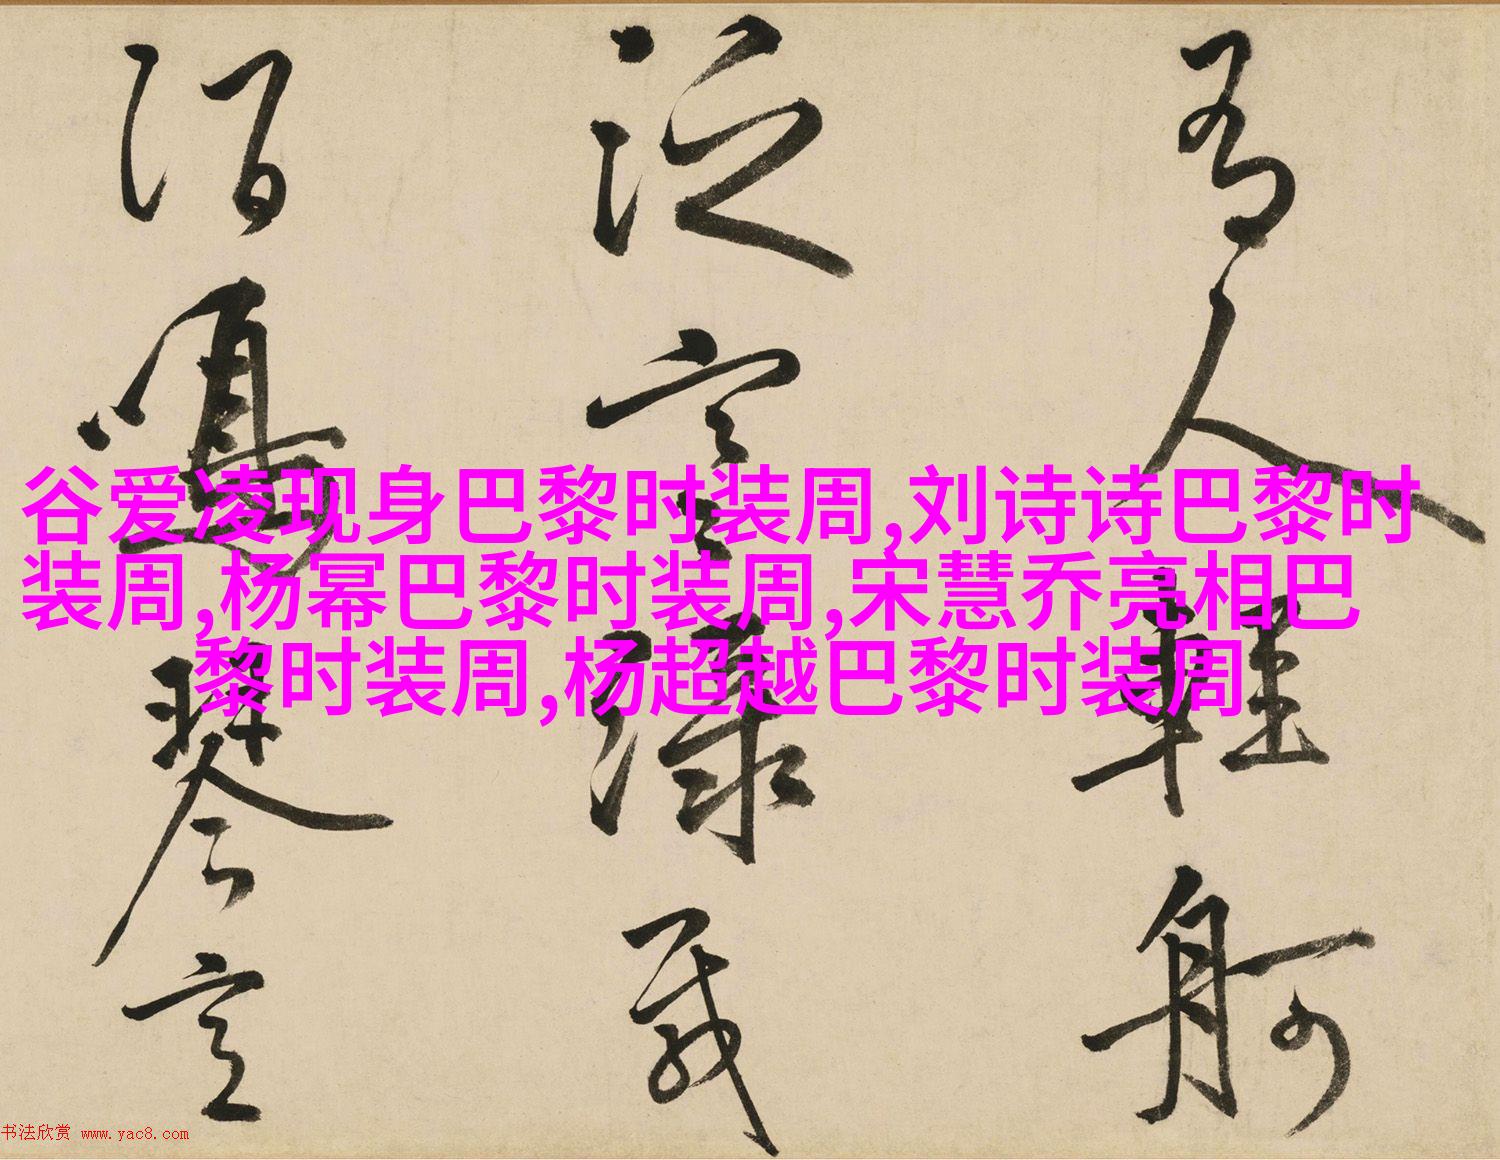 有人輕舸
泛空
酒鳴琴
谷爱凌现身巴黎时装周,刘诗诗巴黎时
装周,杨幂巴黎时装周,宋慧乔亮相巴
黎时装周,杨超越巴黎时装周
书法欣赏 www.yac8.com